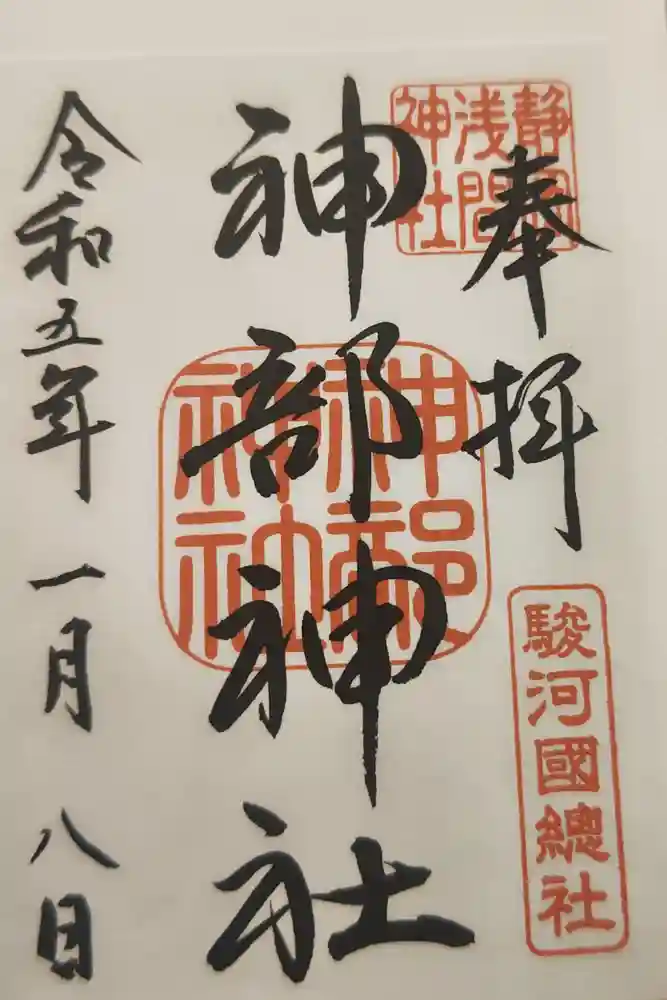 奉拝
静岡
浅間
神社
駿河國總社
神部神社
神部
神社
令和五年 一月 八日